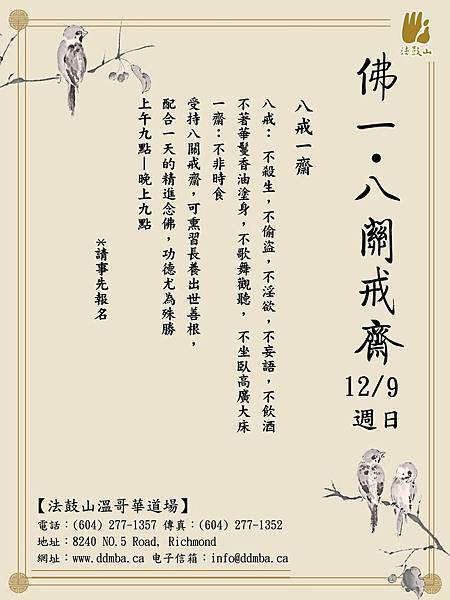 法鼓山
佛一・八關戒齋
12/9
週日
八戒一齋
八戒：不殺生，不偷盜，不淫欲，不妄語，不飲酒
不著華鬘香油塗身，不歌舞觀聽，不坐臥高廣大床
一齋：不非時食
受持八關戒齋，可熏習長養出世善根，
配合一天的精進念佛，功德尤為殊勝
上午九點—晚上九點
※請事先報名
【法鼓山溫哥華道場】
電話：(604) 277-1357 傳真：(604) 277-1352
地址：8240 NO.5 Road, Richmond
網址：www.ddmba.ca 电子信箱：info@ddmba.ca